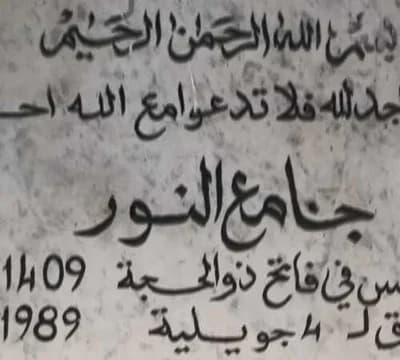 بسم الله الرحمن الرحيم
جد لله فلا تدعوا مع الله احـ
جامع النور
س في فاتح ذو الحجة 1409
ق لـ 4 جويلية 1989